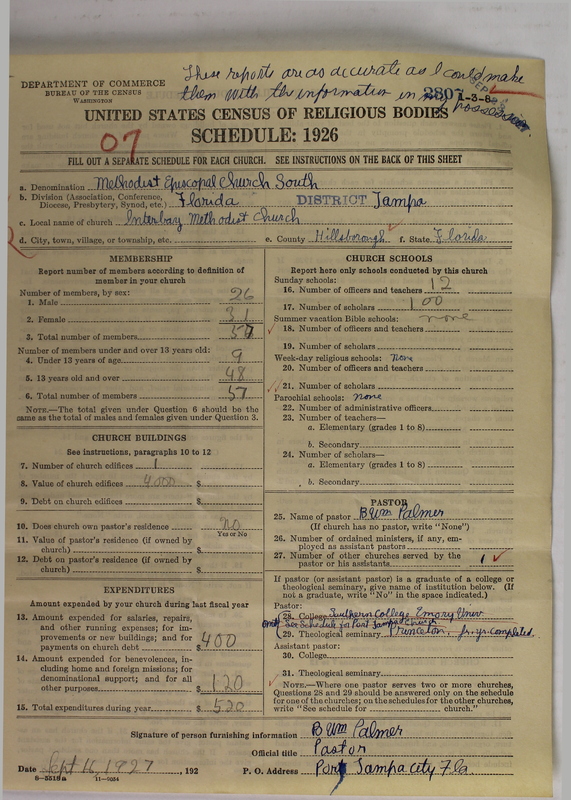 These reports are as accurate as I could make
them with the information in my possession.
DEPARTMENT OF COMMERCE
BUREAU OF THE CENSUS
WASHINGTON
2807
1-3-8
UNITED STATES CENSUS OF RELIGIOUS BODIES
SCHEDULE: 1926
07
FILL OUT A SEPARATE SCHEDULE FOR EACH CHURCH. SEE INSTRUCTIONS ON THE BACK OF THIS SHEET
a. Denomination Methodist Episcopal Church South
b. Division (Association, Conference, Diocese, Presbytery, Synod, etc.) Florida DISTRICT Tampa
c. Local name of church Interbay Methodist Church
d. City, town, village, or township, etc. e. County Hillsborough f. State Florida
MEMBERSHIP
Report number of members according to definition of
member in your church
Number of members, by sex:
1. Male 26
2. Female 31
3. Total number of members 57
Number of members under and over 13 years old:
4. Under 13 years of age 9
5. 13 years old and over 48
6. Total number of members 57
NOTE.—The total given under Question 6 should be the
same as the total of males and females given under Question 3.
CHURCH BUILDINGS
See instructions, paragraphs 10 to 12
7. Number of church edifices 1
8. Value of church edifices 4000 $
9. Debt on church edifices $
10. Does church own pastor's residence no
Yes or No
11. Value of pastor's residence (if owned by
church) $
12. Debt on pastor's residence (if owned by
church) $
EXPENDITURES
Amount expended by your church during last fiscal year
13. Amount expended for salaries, repairs,
and other running expenses; for im-
provements or new buildings; and for
payments on church debt $ 400
14. Amount expended for benevolences, in-
cluding home and foreign missions; for
denominational support; and for all
other purposes $ 120
15. Total expenditures during year $ 520
CHURCH SCHOOLS
Report here only schools conducted by this church
Sunday schools:
16. Number of officers and teachers 12
17. Number of scholars 100
Summer vacation Bible schools: none
18. Number of officers and teachers
19. Number of scholars
Week-day religious schools: none
20. Number of officers and teachers
21. Number of scholars
Parochial schools: none
22. Number of administrative officers
23. Number of teachers—
a. Elementary (grades 1 to 8)
b. Secondary
24. Number of scholars—
a. Elementary (grades 1 to 8)
b. Secondary
PASTOR
25. Name of pastor B Wm Palmer
(If church has no pastor, write "None")
26. Number of ordained ministers, if any, em-
ployed as assistant pastors
27. Number of other churches served by the
pastor or his assistants 1
If pastor (or assistant pastor) is a graduate of a college or
theological seminary, give name of institution below. (If
not a graduate, write "No" in the space indicated.)
Pastor:
28. College Southern College Emory Univ
omit See Schedule for Port Tampa Church
29. Theological seminary Princeton, jr. yr. completed.
Assistant pastor:
30. College
31. Theological seminary
NOTE.—Where one pastor serves two or more churches,
Questions 28 and 29 should be answered only on the schedule
for one of the churches; on the schedules for the other churches,
write "See schedule for church."
Signature of person furnishing information B Wm Palmer
Official title Pastor
Date Sept 16, 1927, 192 P. O. Address Port Tampa City Fla.
8-5518a 11-9034